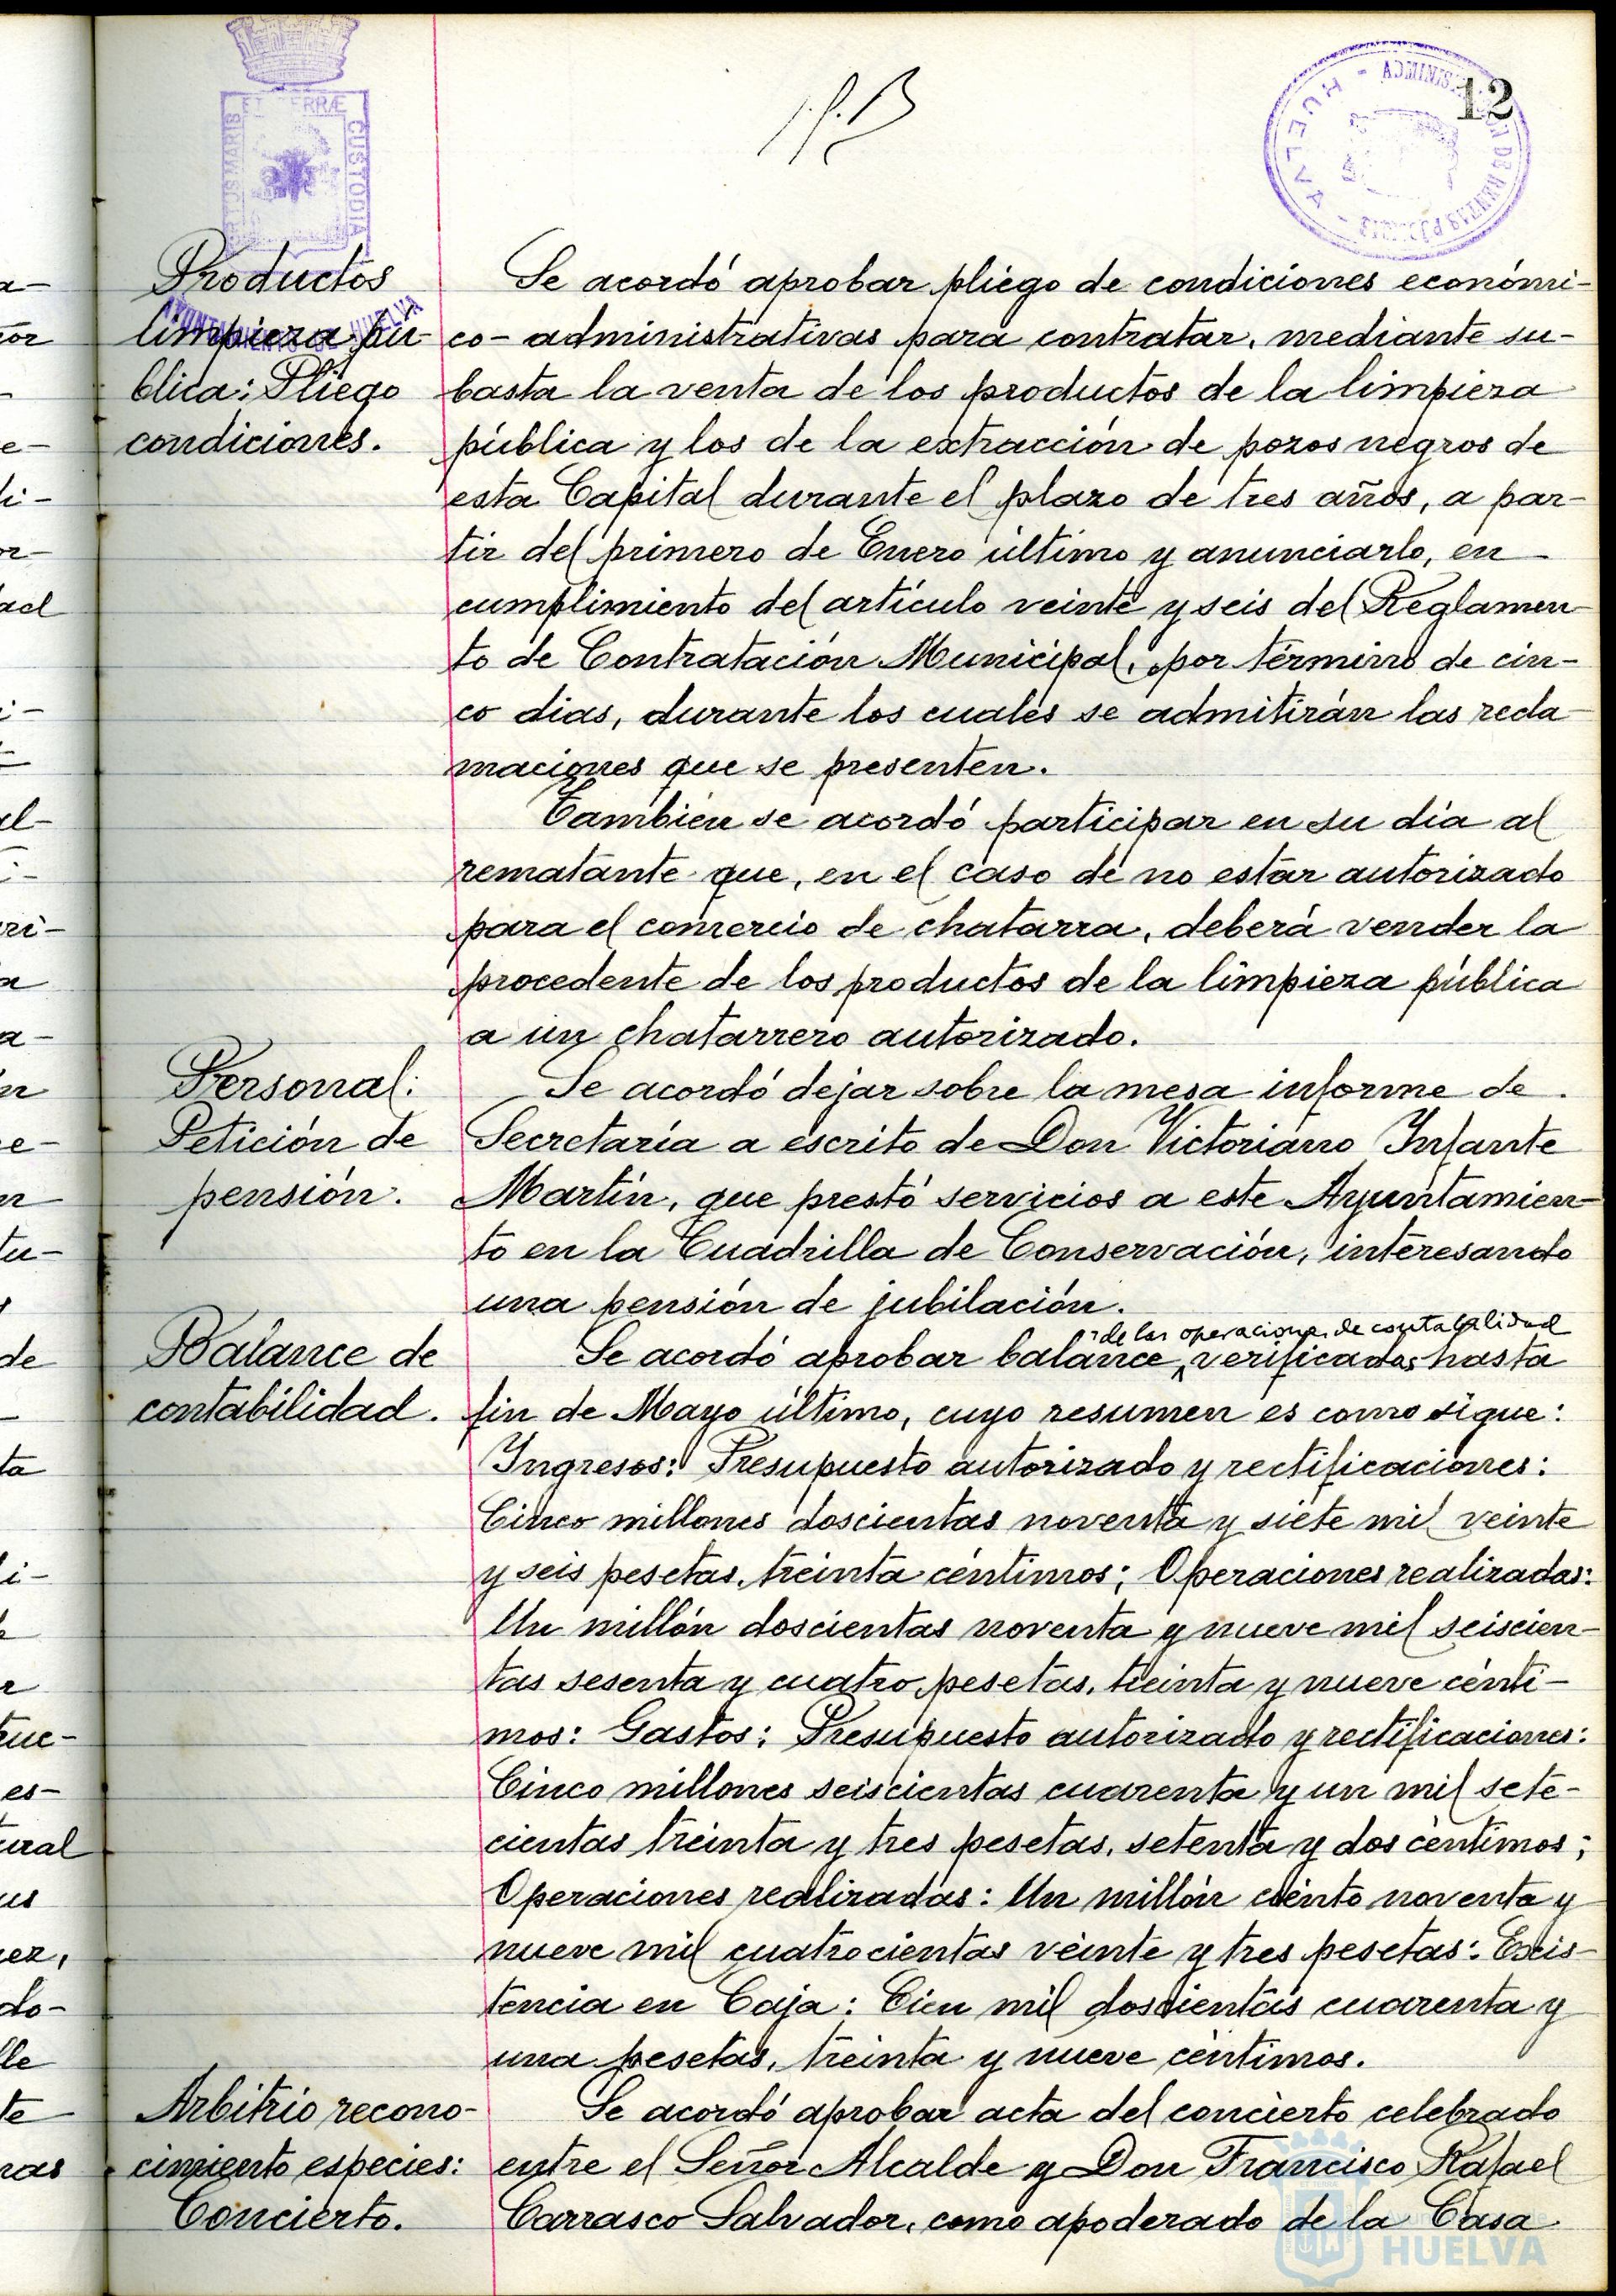 12
Productos
limpieza pú-
blica: Pliego
condiciones.
Se acordó aprobar pliego de condiciones económi-
co-administrativas para contratar, mediante su-
basta la venta de los productos de la limpieza
pública y los de la extracción de pozos negros de
esta Capital durante el plazo de tres años, a par-
tir del primero de Enero último y anunciarlo, en
cumplimiento del artículo veinte y seis del Reglamen-
to de Contratación Municipal, por término de cin-
co dias, durante los cuales se admitirán las recla-
maciones que se presenten.
También se acordó participar en su día al
rematante que, en el caso de no estar autorizado
para el comercio de chatarra, deberá vender la
procedente de los productos de la limpieza pública
a un chatarrero autorizado.
Personal:
Petición de
pensión.
Se acordó dejar sobre la mesa informe de
Secretaría a escrito de Don Victoriano Infante
Martín, que prestó servicios a este Ayuntamien-
to en la Cuadrilla de Conservación, interesando
una pensión de jubilación.
Balance de
contabilidad.
de las operaciones de contabilidad
Se acordó aprobar balance verificadas hasta
fin de Mayo último, cuyo resumen es como sigue:
Ingresos: Presupuesto autorizado y rectificaciones:
Cinco millones doscientas noventa y siete mil veinte
y seis pesetas, treinta céntimos; Operaciones realizadas:
Un millón doscientas noventa y nueve mil seiscien-
tas sesenta y cuatro pesetas, treinta y nueve cénti-
mos: Gastos: Presupuesto autorizado y rectificaciones:
Cinco millones seiscientas cuarenta y un mil sete-
cientas treinta y tres pesetas, setenta y dos céntimos;
Operaciones realizadas: Un millón ciento noventa y
nueve mil cuatrocientas veinte y tres pesetas: Exis-
tencia en Caja: Cien mil doscientas cuarenta y
una pesetas, treinta y nueve céntimos.
Arbitrio recono-
cimiento especies:
Concierto.
Se acordó aprobar acta del concierto celebrado
entre el Señor Alcalde y Don Francisco Rafael
Carrasco Salvador, como apoderado de la Casa
ET TERRÆ
CUSTODIA
PORTUS MARIS
AYUNTAMIENTO DE HUELVA
HUELVA
HUELVA